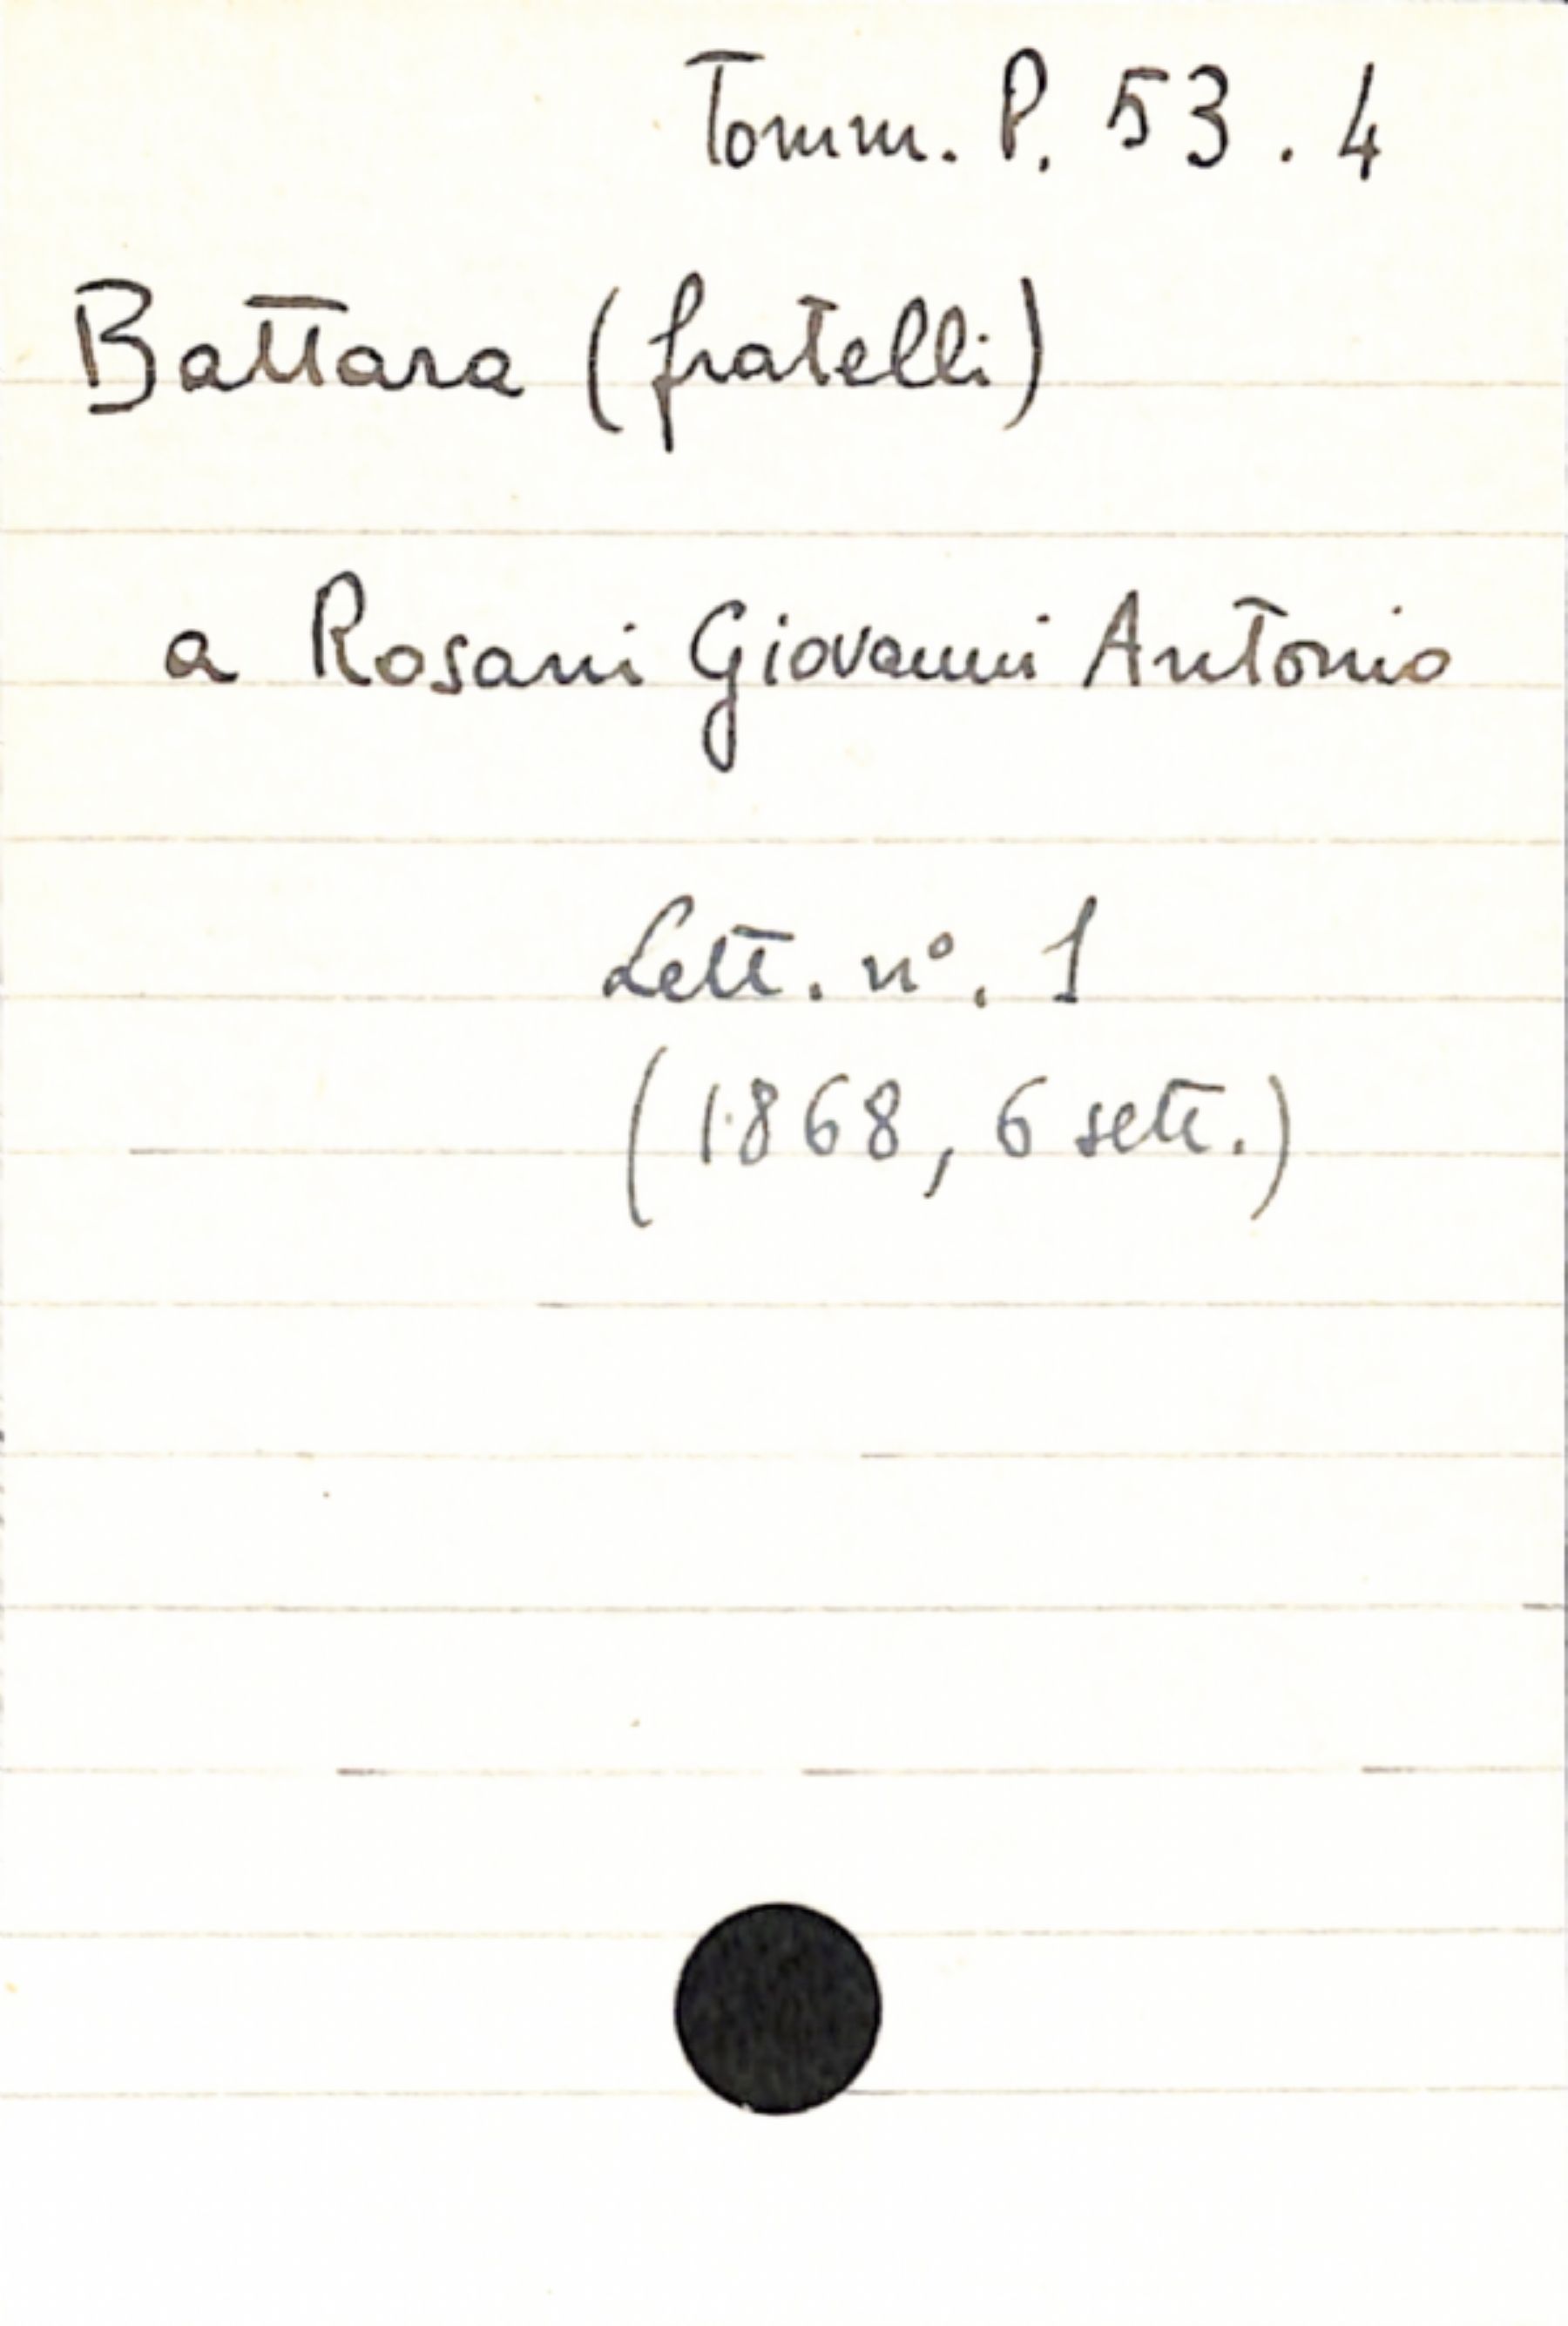 Tomm. P. 53. 4
Battara (fratelli)
a Rosani Giovanni Antonio
Lett. n°. 1
(1868, 6 sett.)